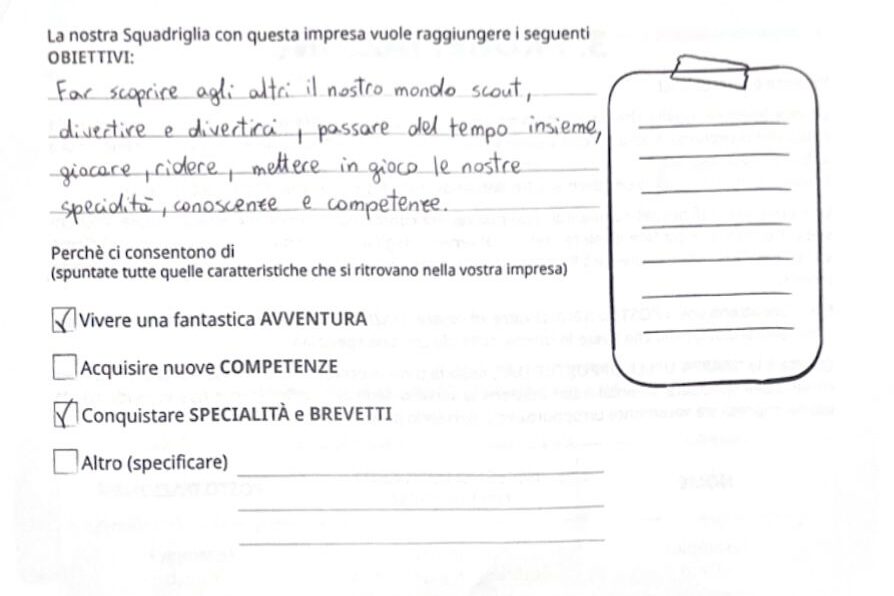 La nostra Squadriglia con questa impresa vuole raggiungere i seguenti
OBIETTIVI:
Far scoprire agli altri il nostro mondo scout,
divertire e divertirci, passare del tempo insieme,
giocare, ridere, mettere in gioco le nostre
specialità, conoscenze e competenze.
Perchè ci consentono di
(spuntate tutte quelle caratteristiche che si ritrovano nella vostra impresa)
Vivere una fantastica AVVENTURA
Acquisire nuove COMPETENZE
Conquistare SPECIALITÀ e BREVETTI
Altro (specificare)